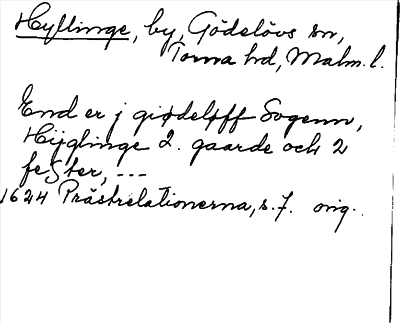 Hyllinge, by, Gödelövs sn,
Torna hd, Malm. l.
End er j giødeløff Sogenn,
Hÿglinge 2. gaarde och 2
feSter, ---
1624 Prästrelationerna, s. 7. orig.